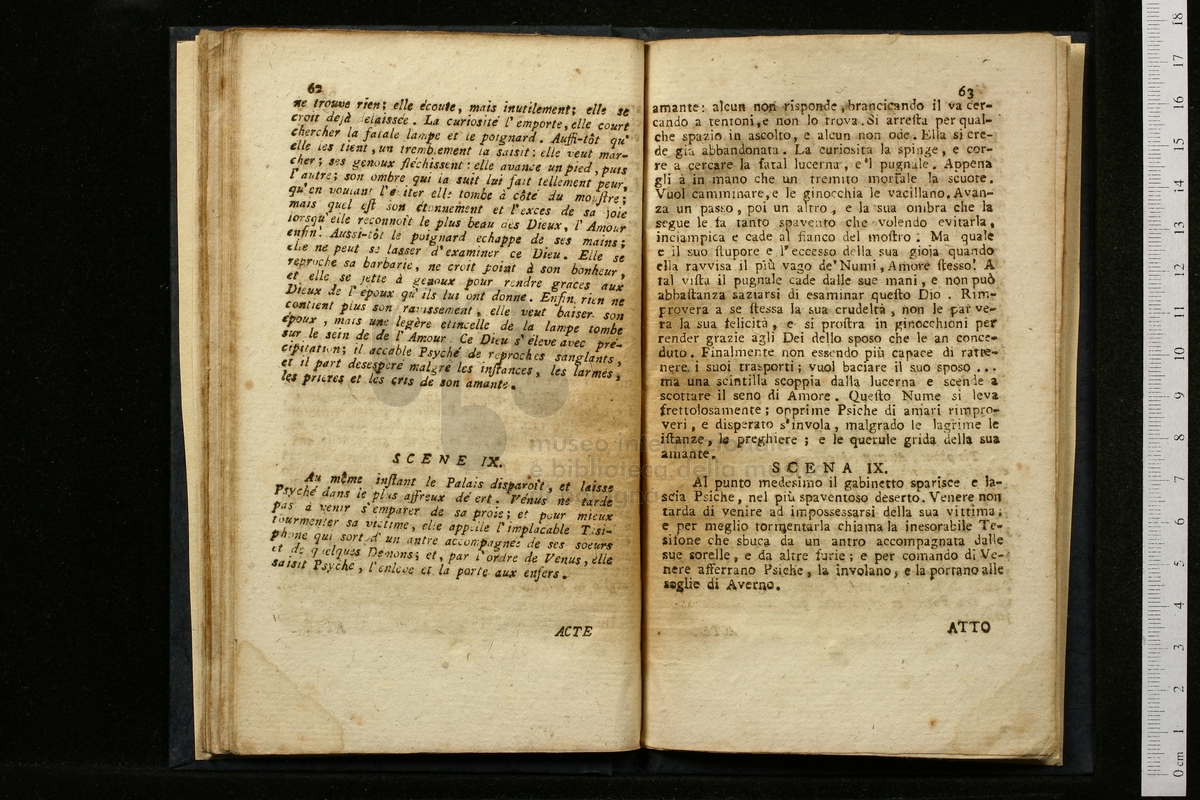 62
ne trouve rien; elle écoute, mais inutilement; elle se
croit dejà delaissée. La curiosité l'emporte, elle court
chercher la fatale lampe et le poignard. Auſſi-tôt qu'
elle les tient, un tremblement la saisit: elle veut mar-
cher; ses genoux fléchissent: elle avance un pied, puis
l'autre; son ombre qui la suit lui fait tellement peur,
qu'en voulant l'eviter elle tombe à côté du monſtre;
mais quel eſt son étonnement et l'exces de sa joie
lorsqu'elle reconnoît le plus beau des Dieux, l'Amour
enfin! Aussi-tôt le poignard echappe de ses mains;
elle ne peut se lasser d'examiner ce Dieu. Elle se
reproche sa barbarie, ne croit point à son bonheur,
et elle se jette à genoux pour rendre graces aux
Dieux de l'époux qu'ils lui ont donne. Enfin, rien ne
contient plus son ravissement, elle veut baiser son
époux, mais une legère etincelle de la lampe tombe
sur le sein de de l'Amour. Ce Dieu s'eleve avec pré-
cipitation; il accable Psyché de reproches sanglants,
et il part desespere malgré les inſtances, les larmes,
les prieres et les cris de son amante.
SCENE IX.
Au même inſtant le Palais disparoît, et laisse
Psyché dans le plus affreux désert. Vénus ne tarde
pas à venir s'emparer de sa proie; et pour mieux
tourmenter sa victime, elle appelle l'implacable Tisi-
phone qui sort d'un antre accompagnée de ses soeurs
et de quelques Demons; et, par l'ordre de Venus, elle
saisit Psyché, l'enleve et la porte aux enfers.
ACTE
63
amante: alcun non risponde, brancicando il va cer-
cando a tentoni, e non lo trova. Si arreſta per qual-
che spazio in ascolto, e alcun non ode. Ella si cre-
de già abbandonata. La curiosità la spinge, e cor-
re a cercare la fatal lucerna, e 'l pugnale. Appena
gli à in mano che un tremito mortale la scuote.
Vuol camminare, e le ginocchia le vacillano. Avan-
za un passo, poi un altro, e la sua ombra che la
segue le fa tanto spavento che volendo evitarla,
inciampica e cade al fianco del moſtro. Ma quale
e il suo ſtupore e l'eccesso della sua gioja quando
ella ravvisa il più vago de'Numi, Amore ſtesso! A
tal viſta il pugnale cade dalle sue mani, e non può
abbaſtanza saziarsi di esaminar queſto Dio. Rim-
provera a se ſtessa la sua crudeltà, non le par ve-
ra la sua felicità, e si proſtra in ginocchioni per
render grazie agli Dei dello sposo che le an conce-
duto. Finalmente non essendo più capace di ratte-
nere i suoi trasporti; vuol baciare il suo sposo ...
ma una scintilla scoppia dalla lucerna e scende a
scottare il seno di Amore. Queſto Nume si leva
frettolosamente; opprime Psiche di amari rimpro-
veri, e disperato s'invola, malgrado le lagrime le
iſtanze, le preghiere; e le querule grida della sua
amante.
SCENA IX.
Al punto medesimo il gabinetto sparisce e la-
scia Psiche, nel più spaventoso deserto. Venere non
tarda di venire ad impossessarsi della sua vittima;
e per meglio tormentarla chiama la inesorabile Te-
sifone che sbuca da un antro accompagnata dalle
sue sorelle, e da altre furie; e per comando di Ve-
nere afferrano Psiche, la involano, e la portano alle
soglie di Averno.
ATTO